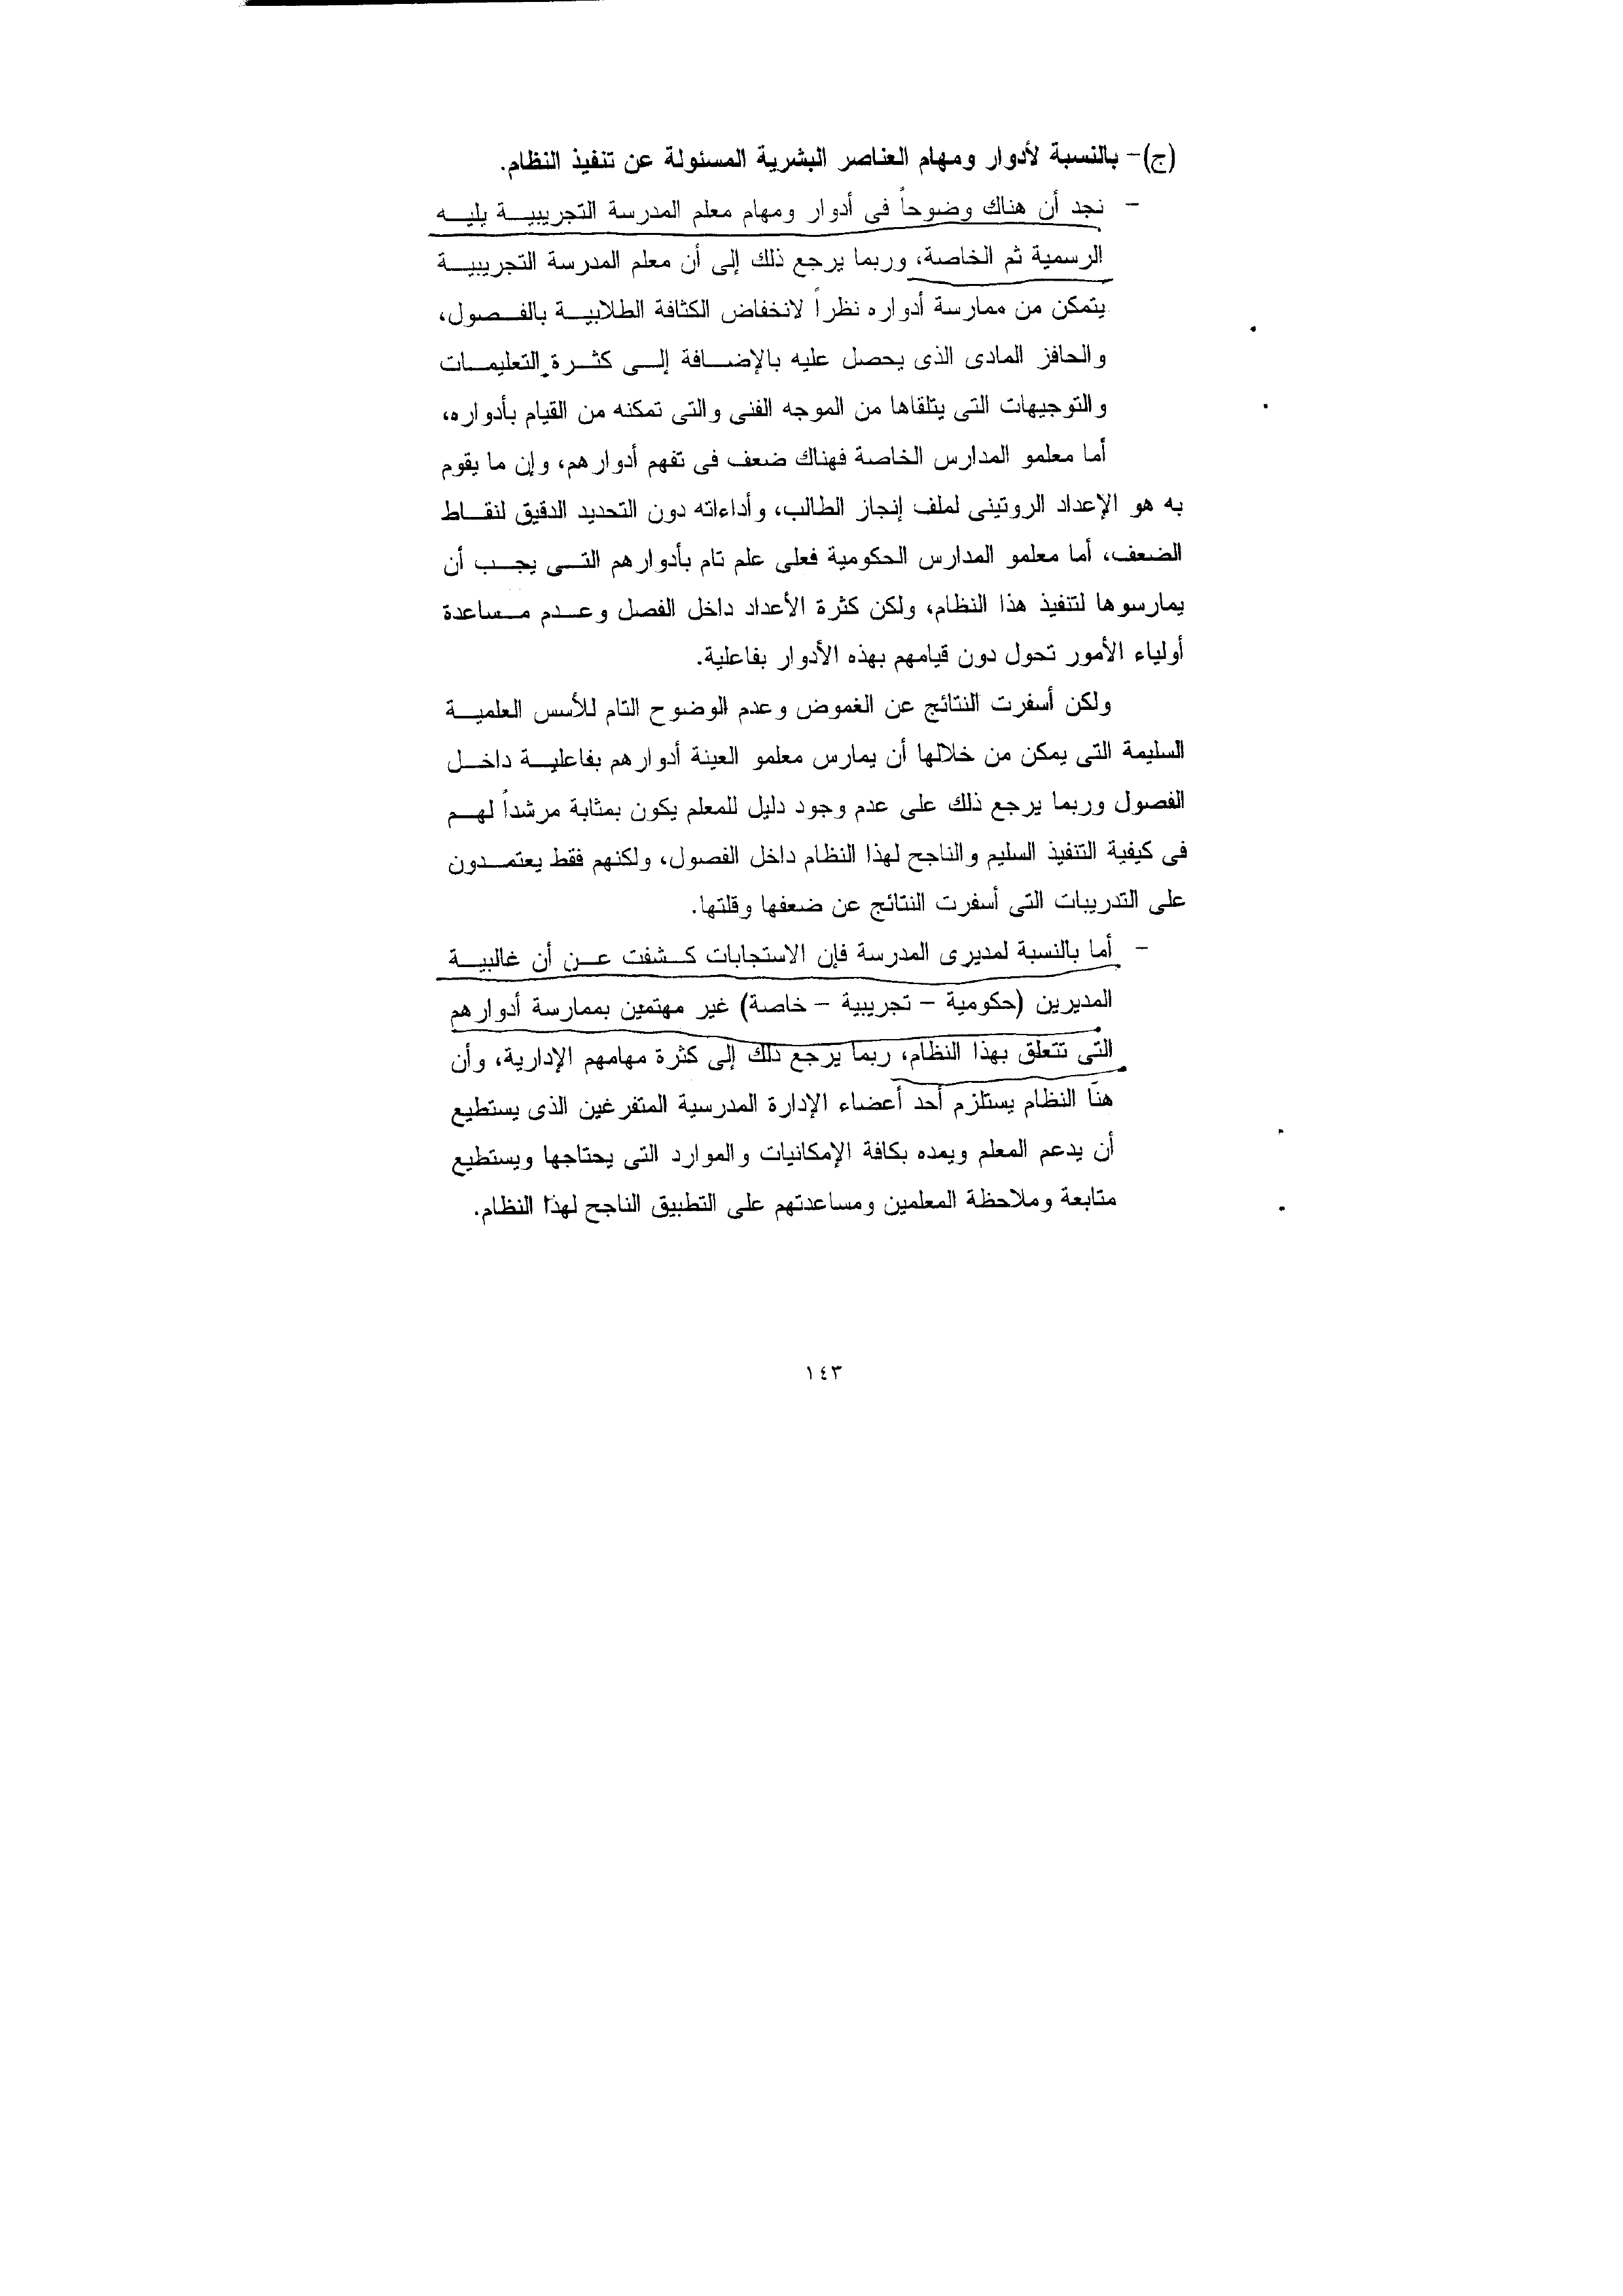 (ج)- بالنسبة لأدوار ومهام العناصر البشرية المسئولة عن تنفيذ النظام.
- نجد أن هناك وضوحاً فى أدوار ومهام معلم المدرسة التجريبية يليه
الرسمية ثم الخاصة، وربما يرجع ذلك إلى أن معلم المدرسة التجريبية
يتمكن من ممارسة أدواره نظراً لانخفاض الكثافة الطلابية بالفصول،
والحافز المادى الذى يحصل عليه بالإضافة إلى كثرة التعليمات
والتوجيهات التى يتلقاها من الموجه الفنى والتى تمكنه من القيام بأدواره،
أما معلمو المدارس الخاصة فهناك ضعف فى تفهم أدوارهم، وإن ما يقوم
به هو الإعداد الروتينى لملف إنجاز الطالب، وأداءاته دون التحديد الدقيق لنقاط
الضعف، أما معلمو المدارس الحكومية فعلى علم تام بأدوارهم التى يجب أن
يمارسوها لتنفيذ هذا النظام، ولكن كثرة الأعداد داخل الفصل وعدم مساعدة
أولياء الأمور تحول دون قيامهم بهذه الأدوار بفاعلية.
ولكن أسفرت النتائج عن الغموض وعدم الوضوح التام للأسس العلمية
السليمة التى يمكن من خلالها أن يمارس معلمو العينة أدوارهم بفاعلية داخل
الفصول وربما يرجع ذلك على عدم وجود دليل للمعلم يكون بمثابة مرشداً لهم
فى كيفية التنفيذ السليم والناجح لهذا النظام داخل الفصول، ولكنهم فقط يعتمدون
على التدريبات التى أسفرت النتائج عن ضعفها وقلتها.
- أما بالنسبة لمديرى المدرسة فإن الاستجابات كشفت عن أن غالبية
المديرين (حكومية - تجريبية - خاصة) غير مهتمين بممارسة أدوارهم
التى تتعلق بهذا النظام، ربما يرجع ذلك إلى كثرة مهامهم الإدارية، وأن
هنا النظام يستلزم أحد أعضاء الإدارة المدرسية المتفرغين الذى يستطيع
أن يدعم المعلم ويمده بكافة الإمكانيات والموارد التى يحتاجها ويستطيع
متابعة وملاحظة المعلمين ومساعدتهم على التطبيق الناجح لهذا النظام.
١٤٣